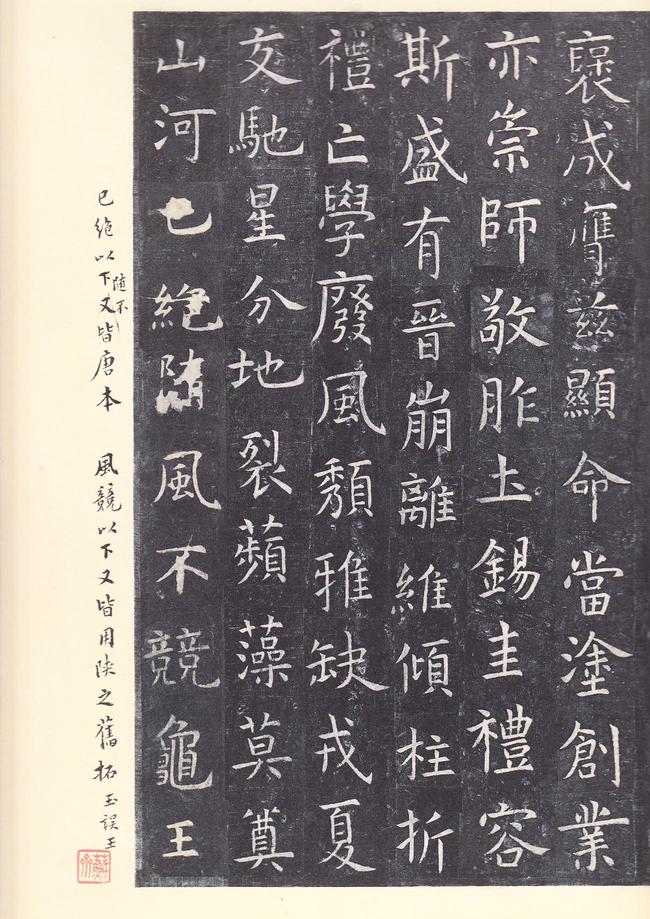 襃成膺兹顯命當塗創業
亦崇師敬胙土錫圭禮容
斯盛有晉崩離維傾柱折
禮亡學廢風頽雅缺戎夏
交馳星分地裂蘋藻莫奠
山河已絕隨風不競龜王
已絕以下又皆唐本 風競以下又皆用陝之舊拓 玉誤王
隨不